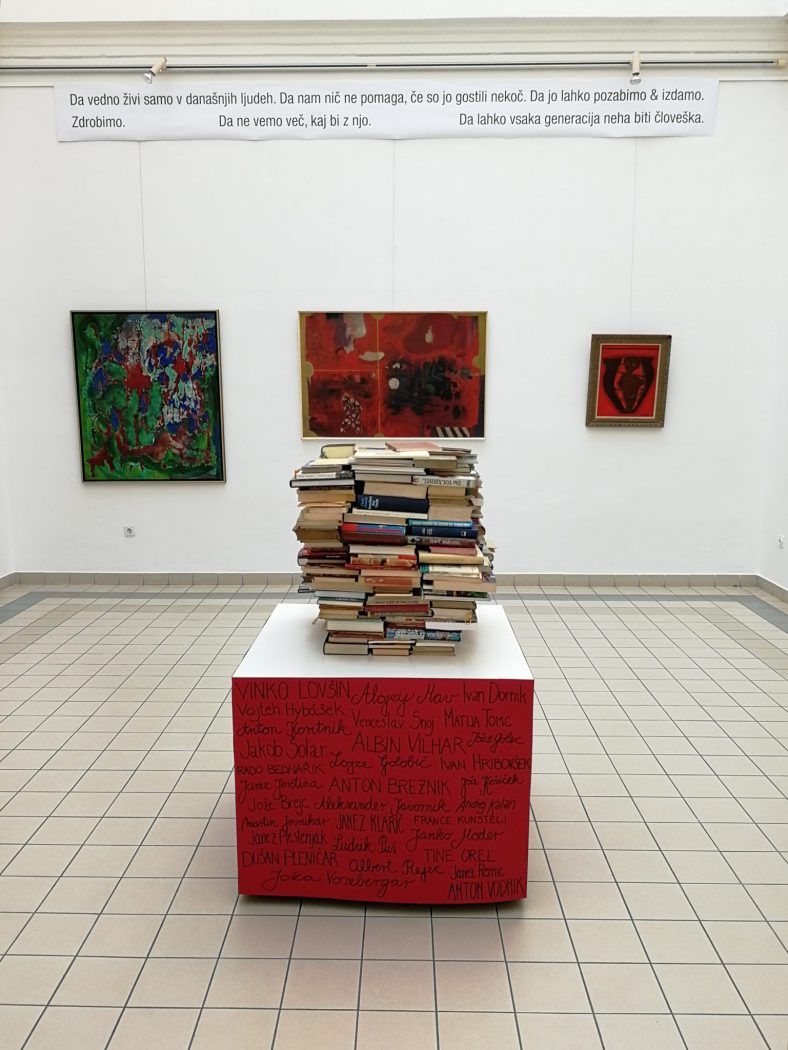 Da vedno živi samo v današnjih ljudeh. Da nam nič ne pomaga, če so jo gostili nekoč. Da jo lahko pozabimo & izdamo.
Zdrobimo. Da ne vemo več, kaj bi z njo. Da lahko vsaka generacija neha biti človeška.
VINKO LOVŠIN Alojzy Mav Ivan Dornik
Vojteh Hybášek Venceslav Snoj MATIJA TOMC
Anton Koritnik ALBIN VILHAR Jože Golec
Jakob Šolar Lojze Golobič IVAN HRIBOVŠEK
RADO BEDNAŘIK
Janez Jeretina ANTON BREZNIK Jože Košiček
Jože Brejc Aleksander Javornik Andrej Kalan
Martin Jevnikar JANEZ KLARIČ FRANCE KUNSTELJ
Janez Plestenjak Ludvik Puš Janko Moder
DUŠAN PLENIČAR Albert Rejec TINE OREL
Janez Remic
Joža Vombergar ANTON VODNIK